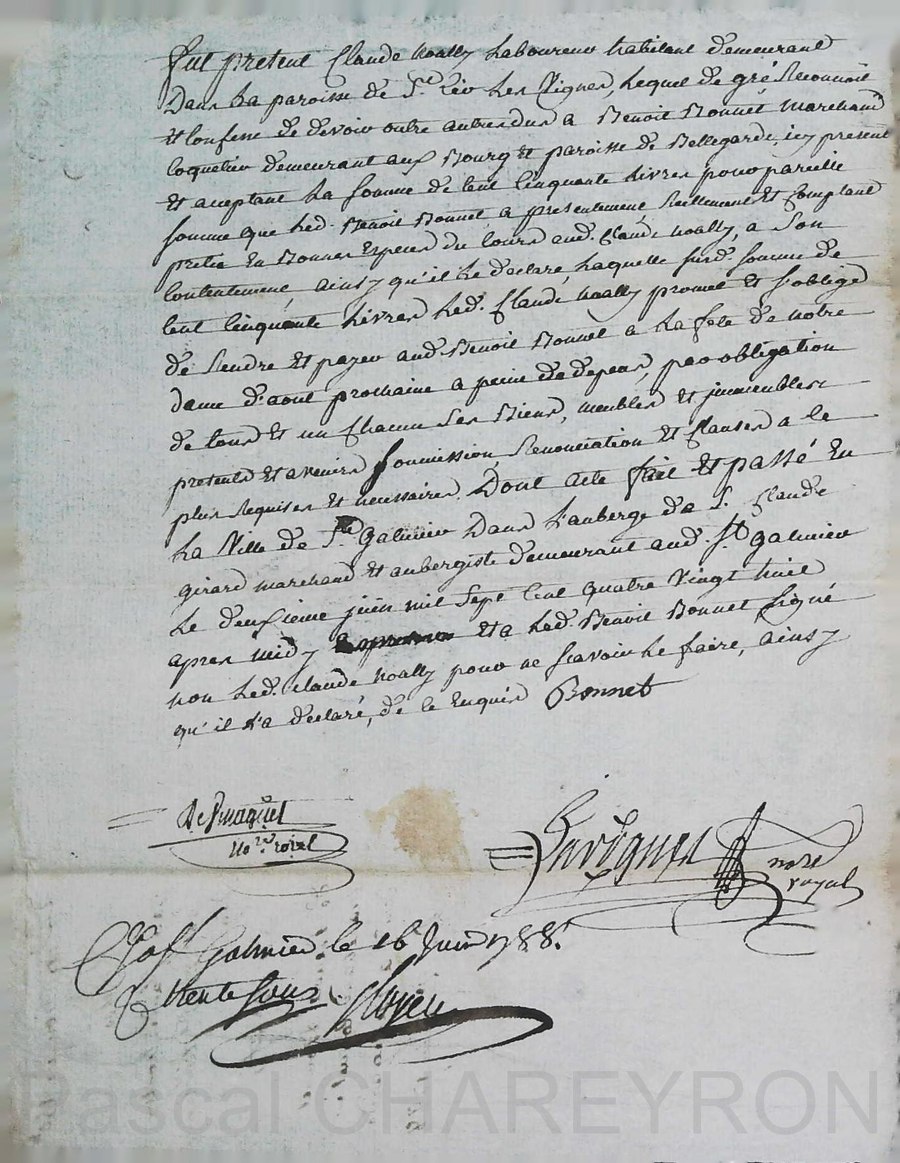 Fut present Claude Noally Laboureur habitant demeurant
Dans La paroisse de St. Cir Les Vignes, Lequel de gré Reconnoit
et Confesse de devoir outre autres dus a Benoit Bonnet Marchand
Coquetier demeurant aux Bourg et paroisse de Bellegarde, icy present
et aceptant La somme de Cent Cinquante Livres pour pareille
somme que Led. Benoit Bonnet a presentement Reellement et Comptant
preté en Bonnes Especes du Cours aud. Claude Noally, a Son
Contentement, ainsy qu'il Le declare, Laquelle susd. somme de
Cent Cinquante Livres Led. Claude Noally promet et s'oblige
de Rendre et payer aud. Benoit Bonnet a La fete de notre
dame d'aout prochaine a peine de depens, par obligation
de tous et un Chacun Ses Biens, meubles et immeubles
presents et avenirs Soumission, Renonciation et Clauses a Ce
plus Requises et necessaires. Dont acte fait et passé En
La Ville de St. Galmier Dans L'auberge de S. Claude
girard marchand et aubergiste demeurant aud. St galmier
Le deuxieme juin mil Sept Cent quatre Vingt huit
apres midy et a Led. Benoit Bonnet Signé
non Led. Claude Noally pour ne Scavoir Le faire, ainsy
qu'il L'a declaré, de Ce Enquis Bonnet
No.re roial
nore
royal
C a St Galmier le 16 Juin 1788.
R trente sous
Pascal CHAREYRON